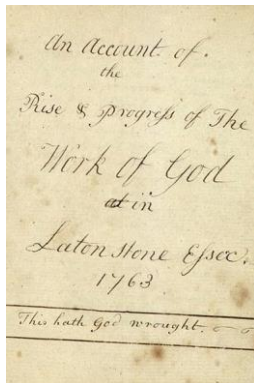 An Account of.
the
Rise & Progress of The
Work of God
at in
Laton stone Essex.
1763
This hath God wrought.